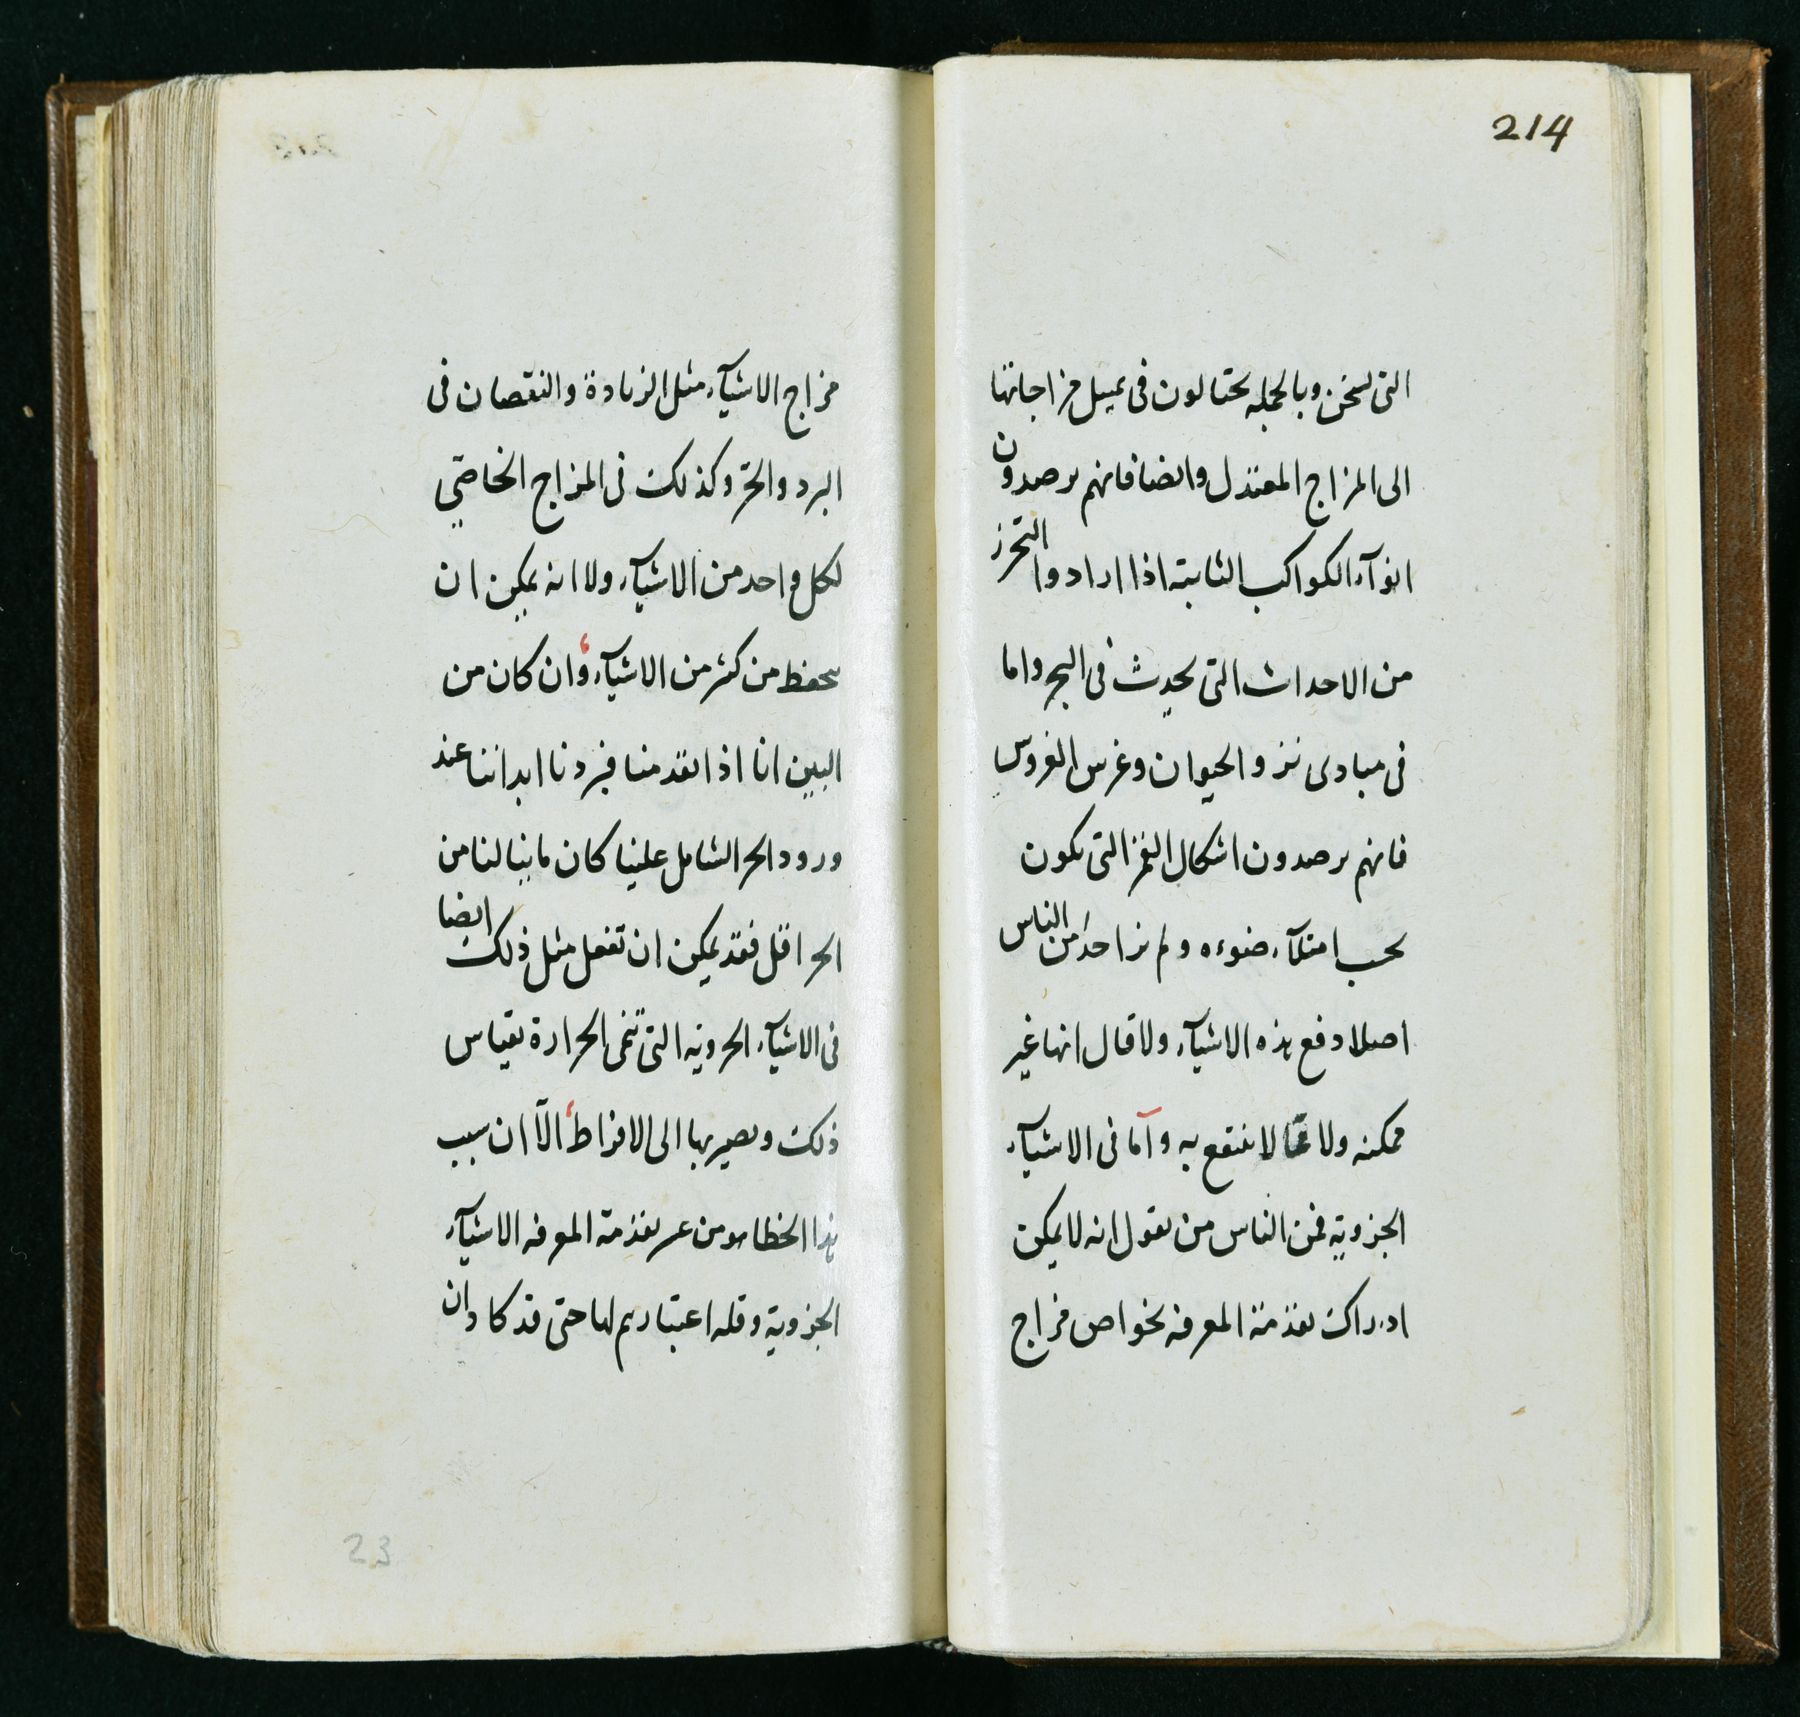 214
التى تسخن وبالجمله يحتالون فى تميل مزاجاتها
الى المزاج المعتدل وايضا فانهم يرصدون
انوآء الكواكب الثابته اذا ارادوا التحرز
من الاحداث التى تحدث فى البحر واما
فى مبادى نزو الحيوان وغرس الغروس
فانهم يرصدون اشكال القمر التى تكون
بحسب امتلآء ضوءه ولم نر احدا من الناس
اصلا دفع هذه الاشيآء ولا قال انها غير
ممكنه ولا مما لا ينتفع به وآما فى الاشيآء
الجزويه فمن الناس من يقول انه لا يمكن
ادراك تقدمة المعرفه بخواص مزاج
مزاج الاشيآء مثل الزيادة والنقصان فى
البرد والحر وكذلك فى المزاج الخاصّى
لكل واحد من الاشيآء ولا انه يمكن ان
يتحفظ من كثير من الاشيآء وان كان من
البين انا اذا تقدمنا فبردنا ابداننا عند
ورود الحر الشامل علينا كان ما ينالنا من
الحر اقل فقد يمكن ان تفعل مثل ذلك ايضا
فى الاشيآء الجزويه التى تنمى الحرارة بقياس
ذلك وتصير بها الى الافراط الآ ان سبب
هذا الخطا هو من عسر تقدمة المعرفه الاشيآء
الجزوية وقله اعتبارهم لها حتى قد كاد ان
23